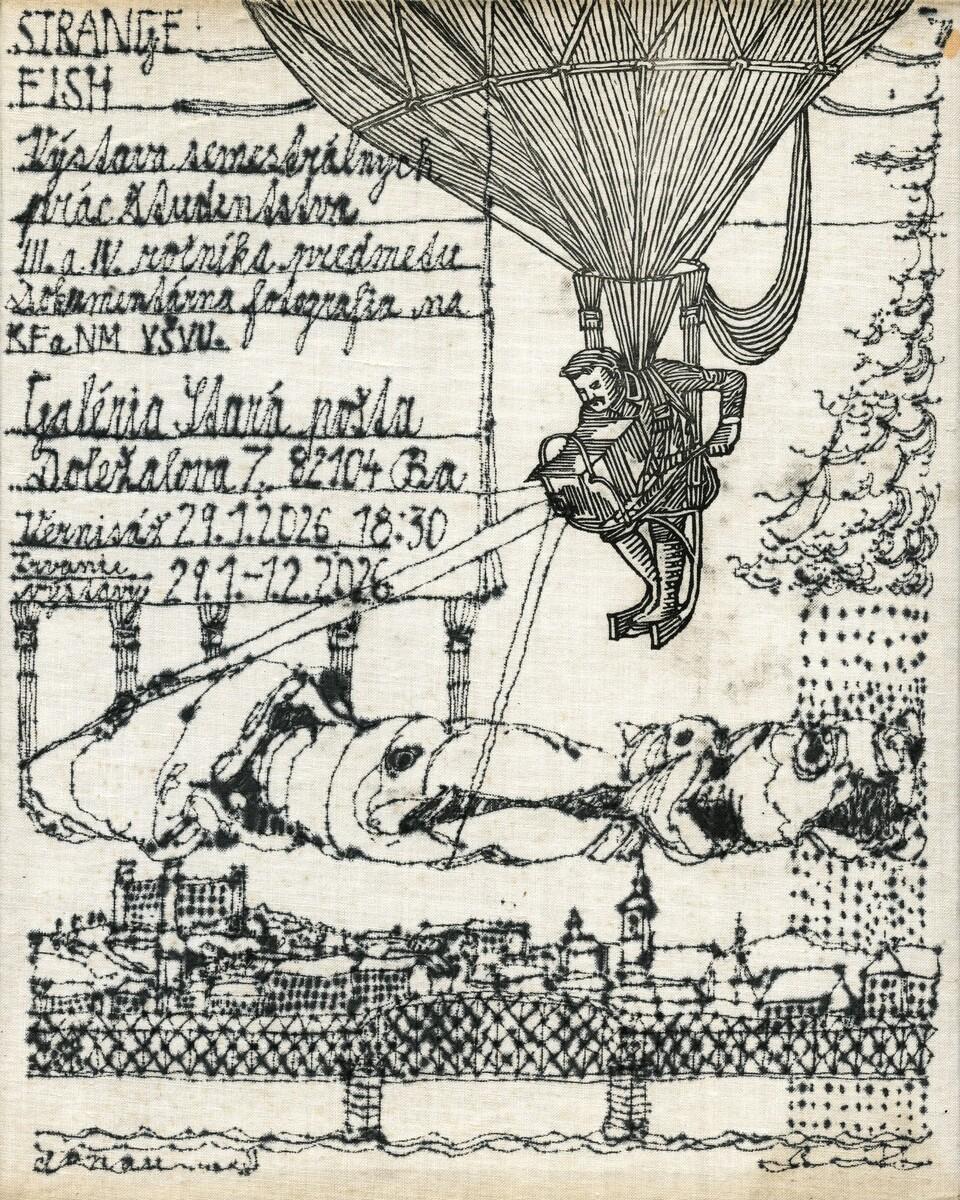 STRANGE
FISH
Výstava semestrálnych
prác študentstva
III. a IV. ročníka predmetu
Dokumentárna fotografia na
KFaNM VŠVU.
Galéria Stará pošta
Doležalova 7, 82104 Ba
Vernisáž 29.1.2026 18:30
Trvanie
výstavy 29.1-12.2.2026